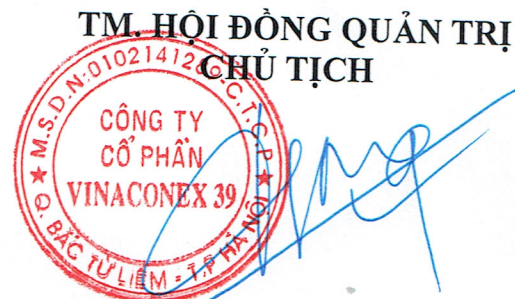 TM. HỘI ĐỒNG QUẢN TRỊ
CHỦ TỊCH
M.S.D.N:0102141269-C.T.C.P
CÔNG TY
CỔ PHẦN
VINACONEX 39
Q. BẮC TỪ LIÊM - T.P HÀ NỘI